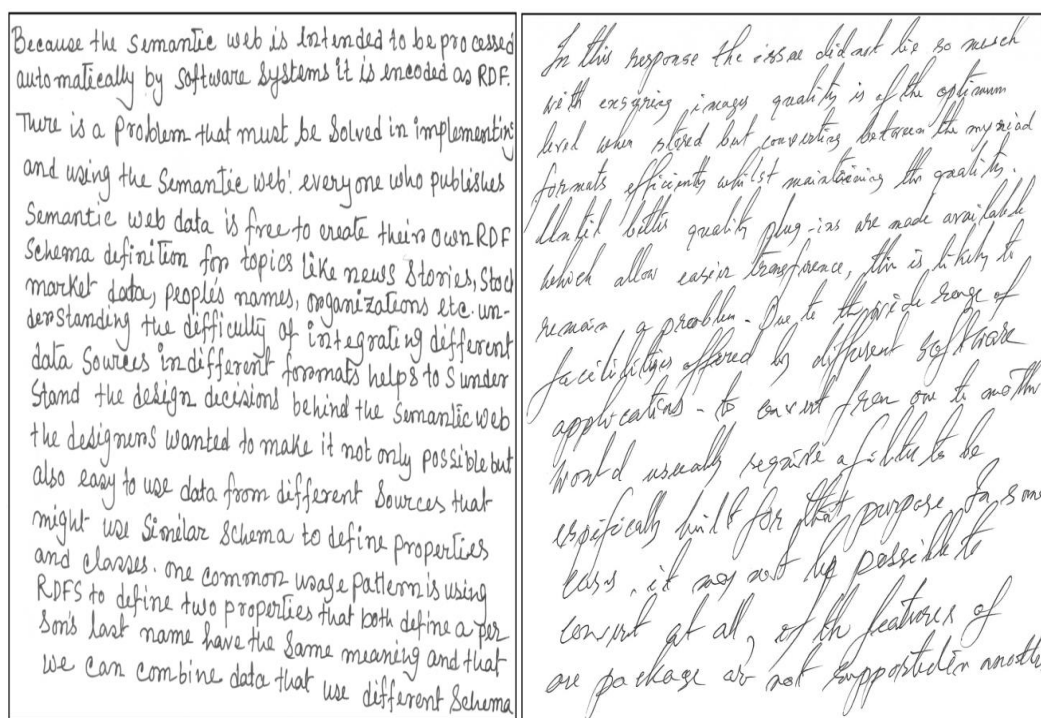 Because the Semantic web is Intended to be processed
automatically by Software Systems it is encoded as RDF.
There is a Problem that must be Solved in implementing
and using the Semantic web: everyone who publishes
Semantic web data is free to create their own RDF
Schema definition for topics like news Stories, Stock
market data, people's names, organizations etc. un-
derstanding the difficulty of integrating different
data Sources in different formats helps to S under
Stand the design decisions behind the Semantic web
the designers wanted to make it not only possible but
also easy to use data from different Sources that
might use Similar Schema to define properties
and classes. one common usage pattern is using
RDFS to define two properties that both define a per
Son's last name have the Same meaning and that
we can combine data that use different Schema
In this response the issue did not lie so much
with ensuring images quality is of the optimum
level when stored but converting between the myriad
formats efficiently whilst maintaining the quality.
Until better quality plug-ins are made available
which allow easier transference, this is likely to
remain a problem. Due to the wide range of
facilities offered by different software
applications - to convert from one to another
would usually require a filter to be
built for that purpose. In some
cases, it may not be possible to
convert at all, of the features of
one package are not supported in another